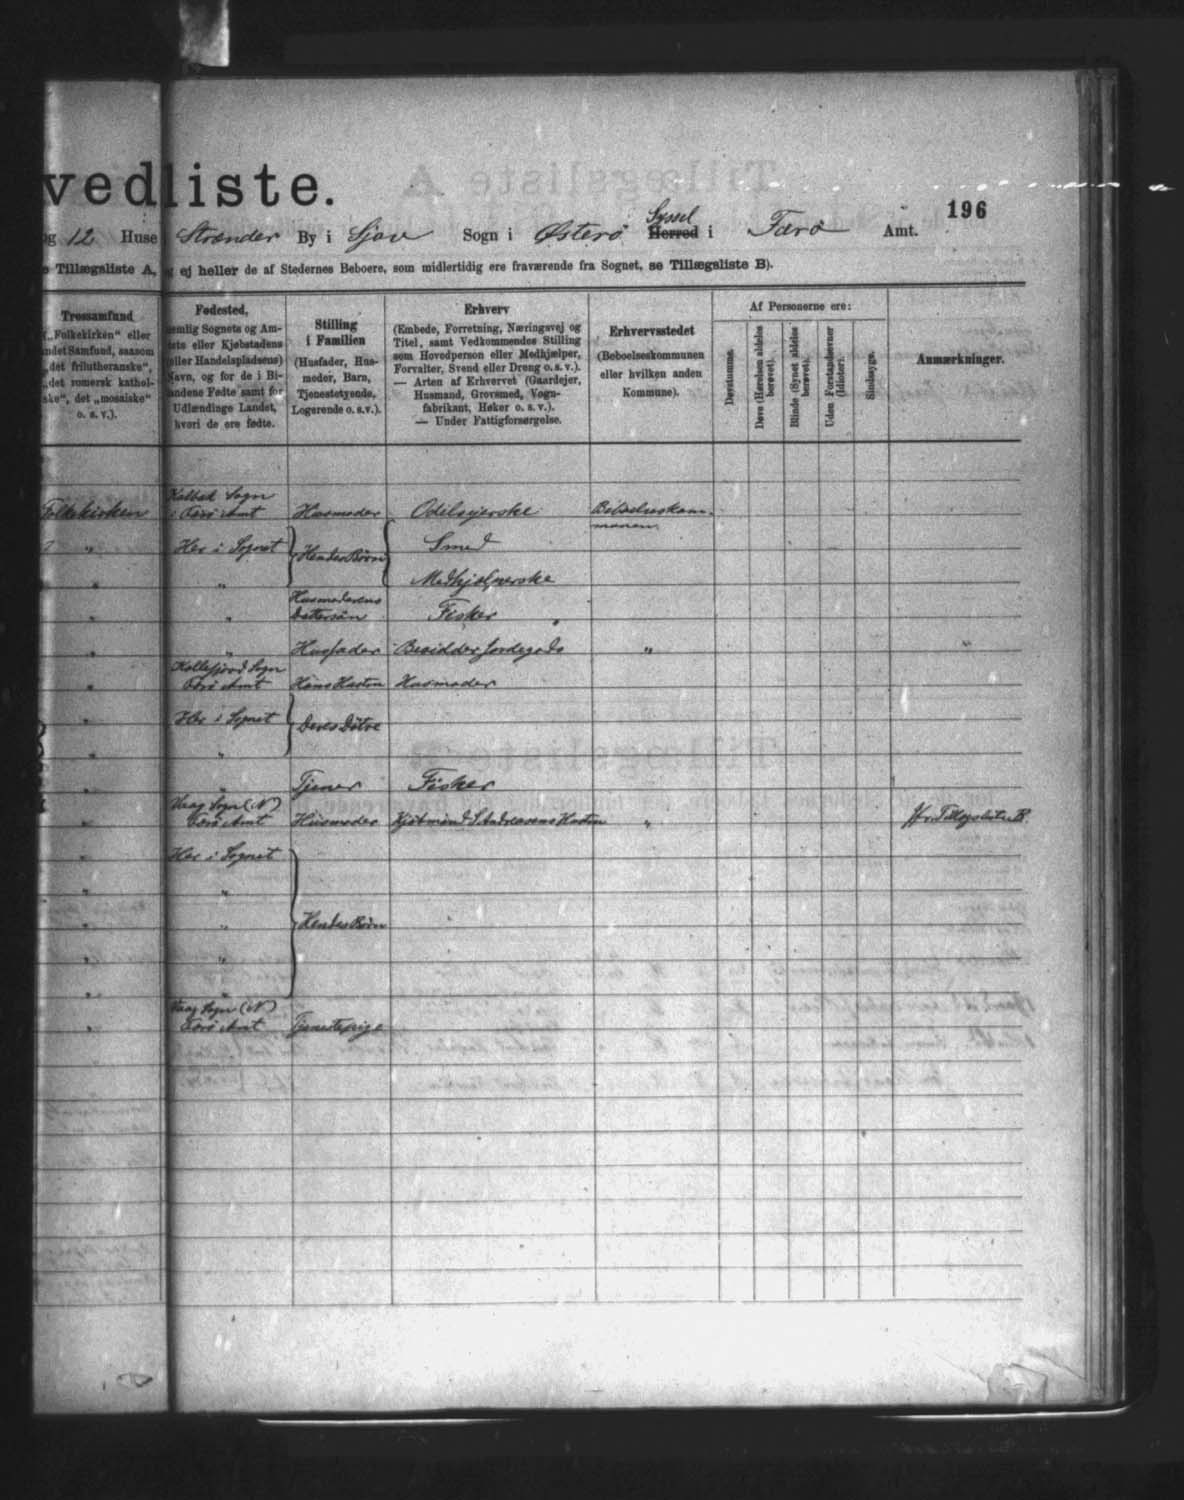 vedliste.
196
og 12 Huse Strænder By i Sjov Sogn i Østerø Syssel Herred i Færø Amt.
e Tillægsliste A, og ej heller de af Stedernes Beboere, som midlertidig ere fraværende fra Sognet, se Tillægsliste B).
Trossamfund
(„Folkekirken“ eller
andet Samfund, saasom
„det frilutheranske“,
„det romersk kathol-
ske“, det „mosaiske“
o. s. v.).
Fødested,
nemlig Sognets og Am-
tets eller Kjøbstadens
(eller Handelspladsens)
Navn, og for de i Bi-
landene Fødte samt for
Udlændinge Landet,
hvori de ere fødte.
Stilling
i Familien
(Husfader, Hus-
moder, Barn,
Tjenestetyende,
Logerende o. s. v.).
Erhverv
(Embede, Forretning, Næringsvej og
Titel, samt Vedkommendes Stilling
som Hovedperson eller Medhjælper,
Forvalter, Svend eller Dreng o. s. v.).
— Arten af Erhvervet (Gaardejer,
Husmand, Grovsmed, Vogn-
fabrikant, Høker o. s. v.).
— Under Fattigforsørgelse.
Erhvervsstedet
(Beboelseskommunen
eller hvilken anden
Kommune).
Af Personerne ere:
Døvstumme.
Døve (Hørelsen aldeles
berøvet).
Blinde (Synet aldeles
berøvet).
Uden Forstandsevner
(Idioter).
Sindssyge.
Anmærkninger.
Folkekirken
Kalbad Sogn
i Færø Amt Husmoder Odelsejerske Beboelseskom-
munen
" Her i Sognet Hendes Børn Smed
" " Medhjælperske
" " Husmoderens
Dattersøn Fisker
" " Husfader Besidder Jordegods " "
Kollefjord Sogn
" Færø Amt Hans Hustru Husmoder
" Her i Sognet Deres Døtre
" "
" " Tjener Fisker
Vaag Sogn (N)
" Færø Amt Husmoder Kjøbmand S Andreasens Hustru " Jfr. Tillægsliste B.
Her i Sognet
" "
" " Hendes Børn
" "
" "
Vaag Sogn (N)
" Færø Amt Tjenestepige